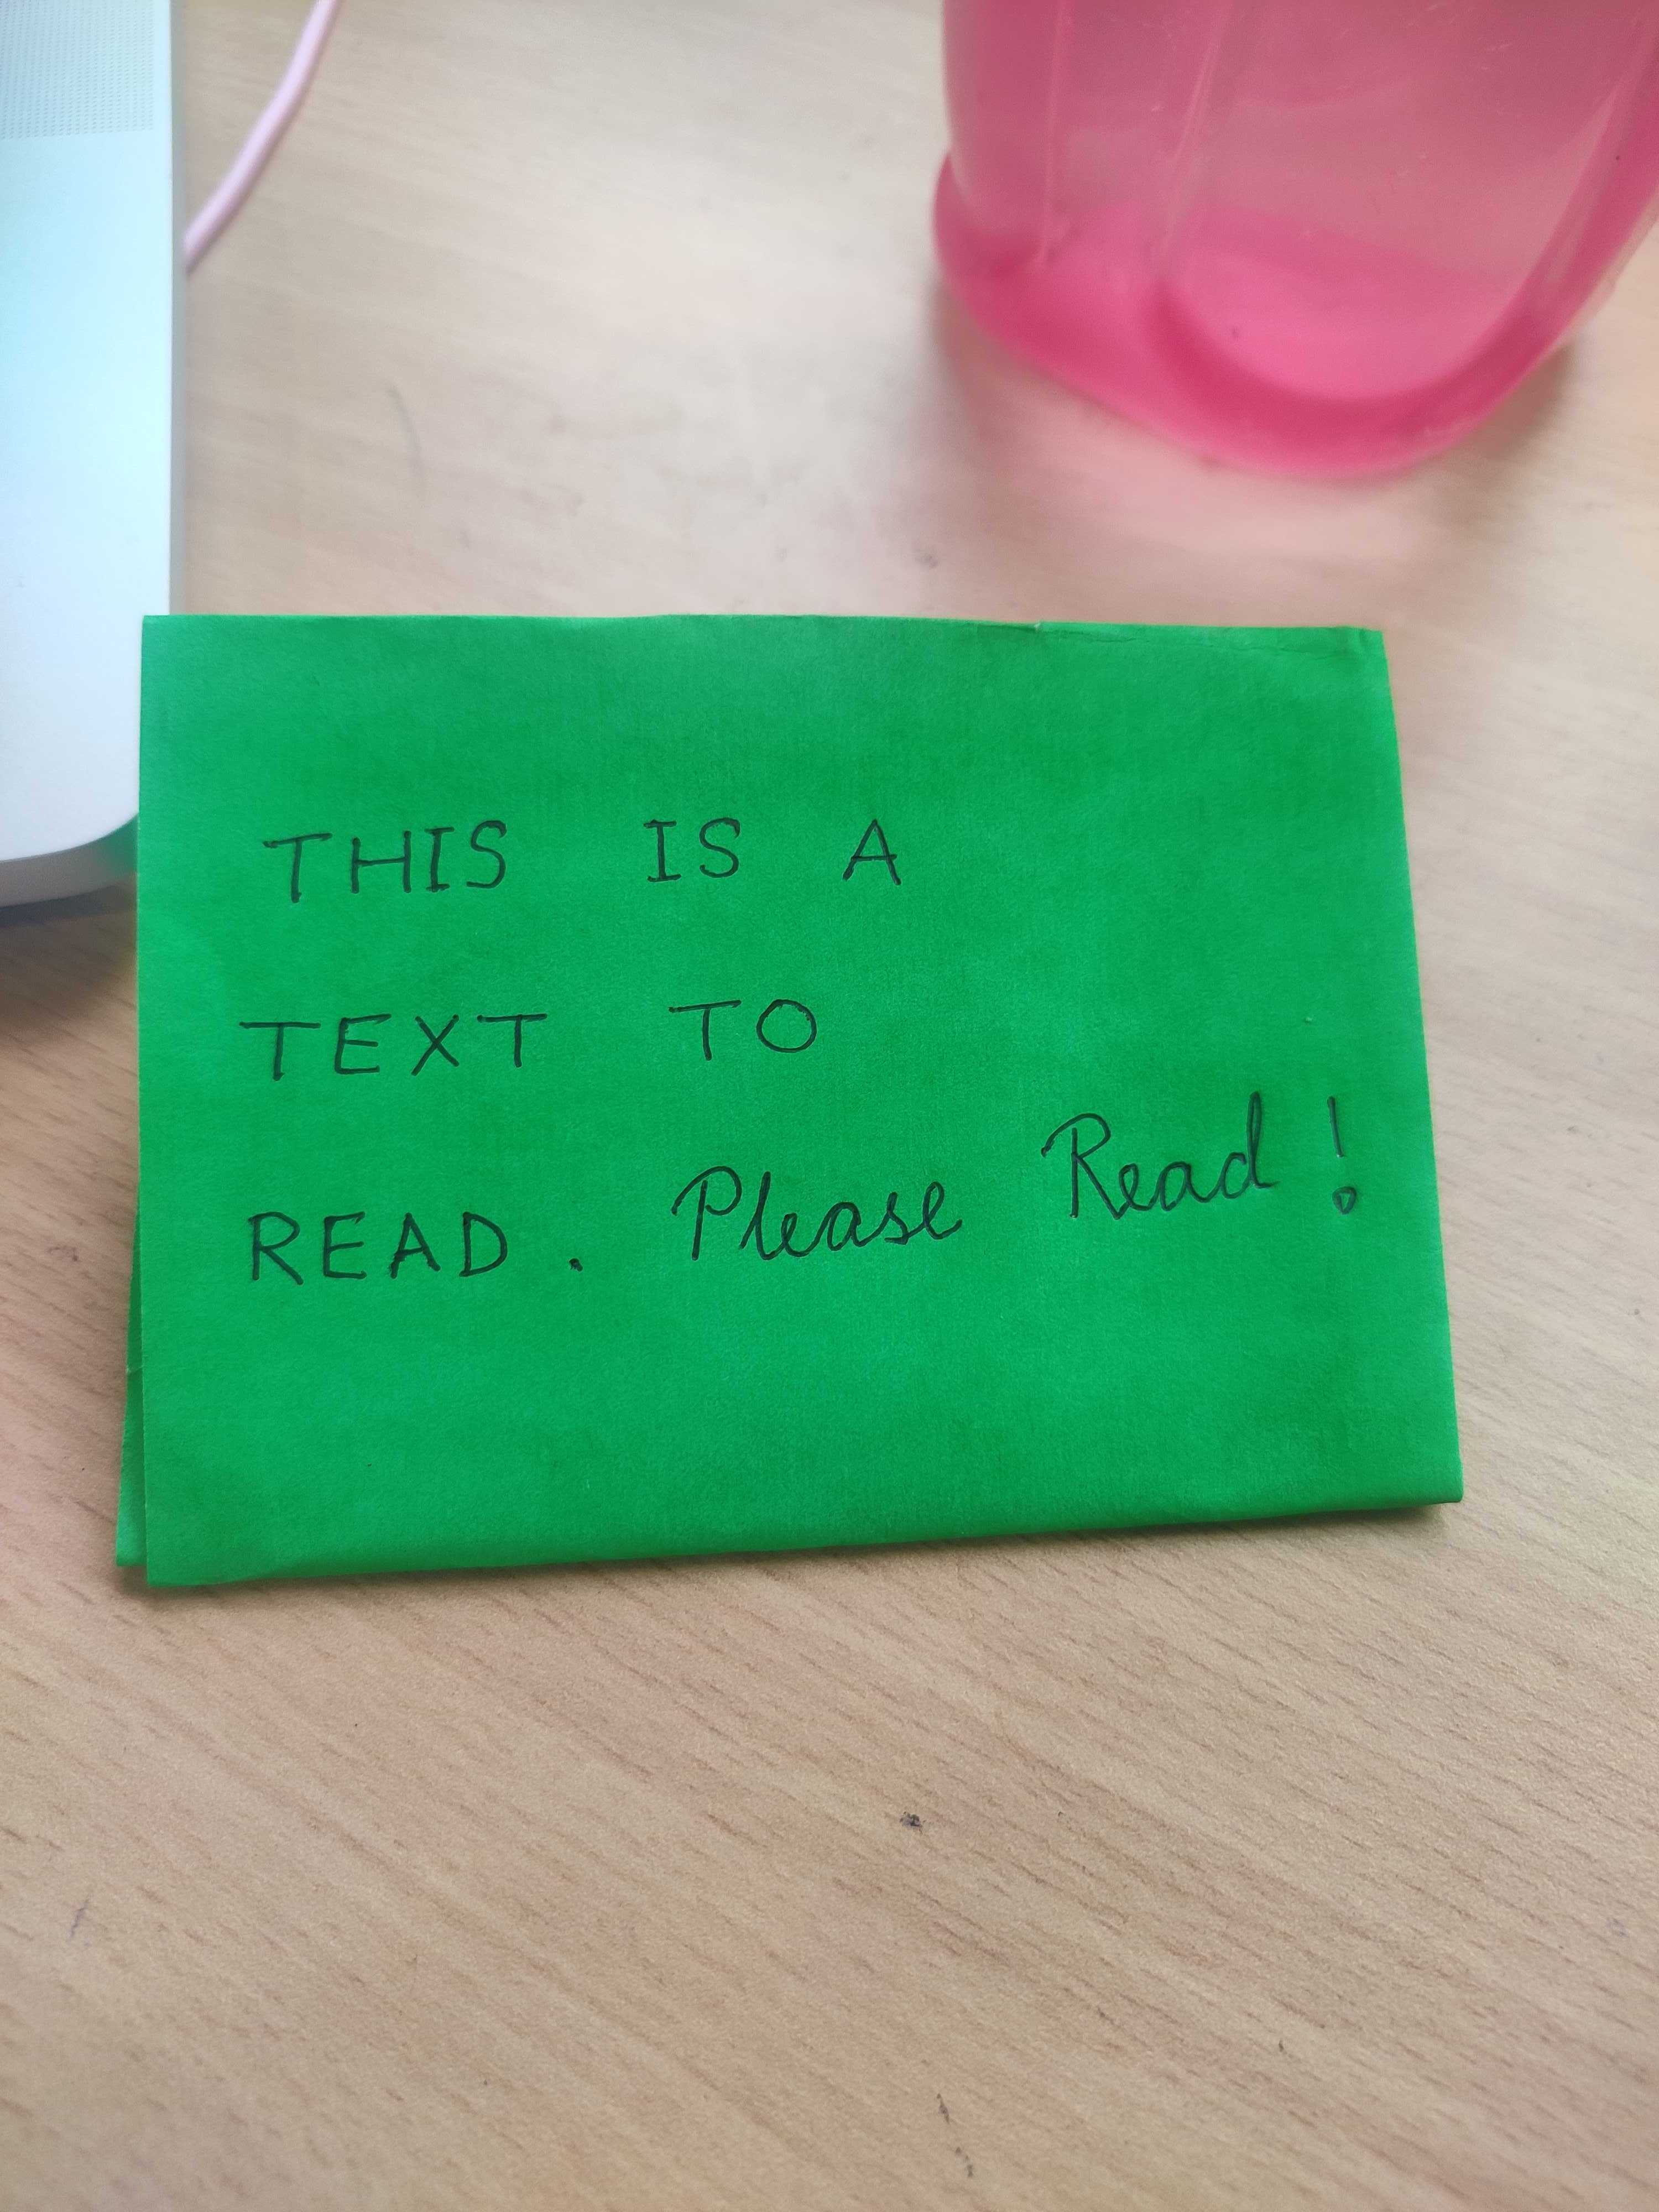 THIS IS A
TEXT TO
READ. Please Read!